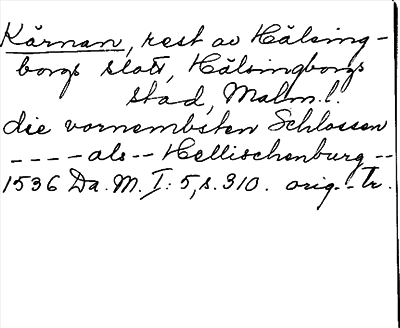 Kärnan, rest av Hälsing-
borgs slott, Hälsingborgs
stad, Malm.l.
die vornembsten Schlossen
---- als -- Hellischenburg --
1536 Da.M. I:5, s. 310. orig.-Tr.